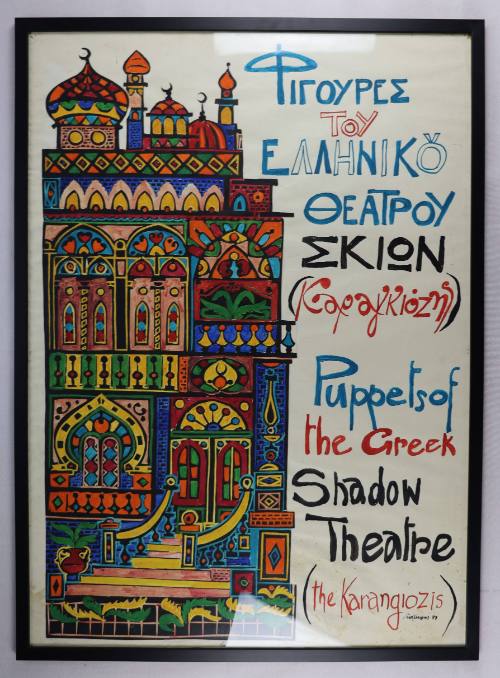 ΦΙΓΟΥΡΕΣ
ΤΟΥ
ΕΛΛΗΝΙΚΟΥ
ΘΕΑΤΡΟΥ
ΣΚΙΩΝ
(Καραγκιόζη)
Puppets of
the Greek
Shadow
Theatre
(the Karangiozis)